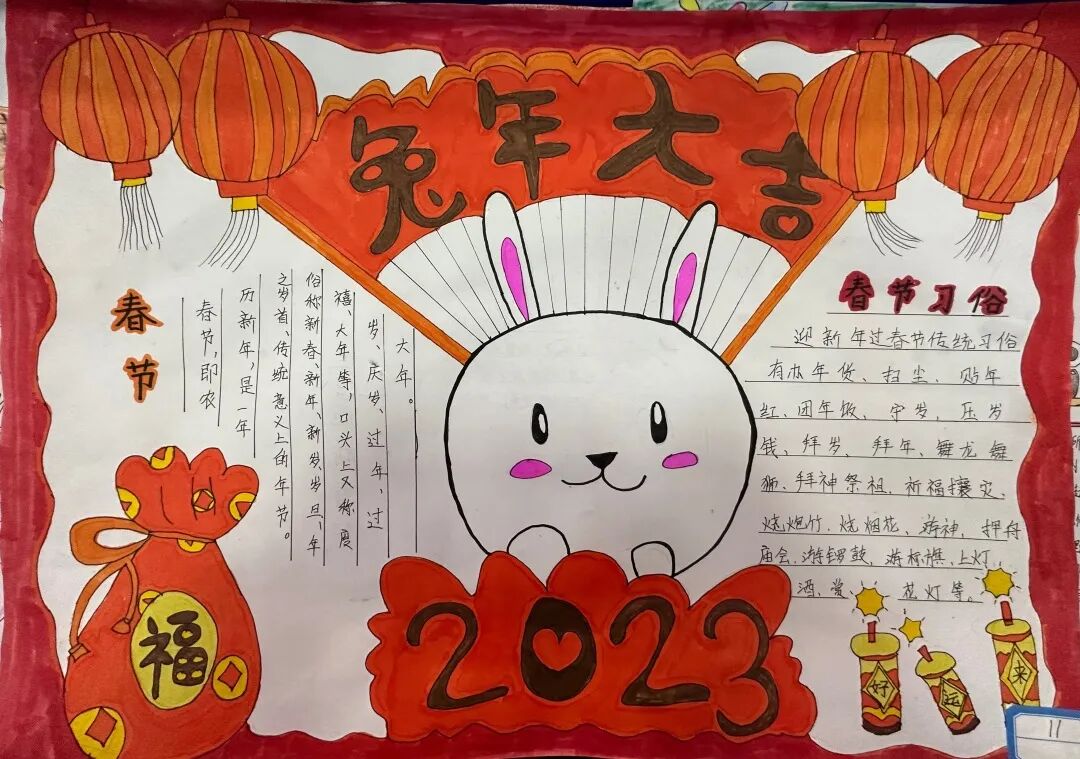 兔年大吉
春节
春节,即农
历新年,是一年
之岁首、传统意义上的年节。
俗称新春、新年、新岁、岁旦、年
禧、大年等,口头上又称度
岁、庆岁、过年、过
大年。
春节习俗
迎新年过春节传统习俗
有办年货、扫尘、贴年
红、团年饭、守岁、压岁
钱、拜岁、拜年、舞龙舞
狮、拜神祭祖、祈福攘灾、
烧炮竹、烧烟花、游神、押舟
庙会、游锣鼓、游标旗、上灯、
酒、赏、花灯等。
福
2023
好
运
来
11